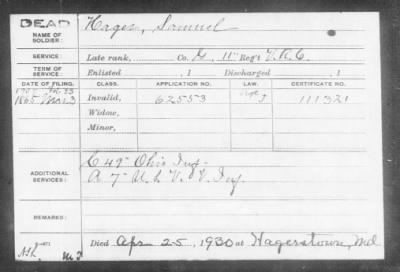 DEAD
NAME OF SOLDIER: Hages, Samuel
SERVICE: Late rank, Co. G, 11" Reg't V.R.C.
TERM OF SERVICE: Enlisted , 1 Discharged , 1
DATE OF FILING. CLASS. APPLICATION NO. LAW. CERTIFICATE NO.
1865 Mar 3 Invalid, 62553 111321
Widow,
Minor,
ADDITIONAL SERVICES: C 49" Ohio Inf.
A 7" U.S. V.V. Inf.
REMARKED:
Died Apr 25, 1930 at Hagerstown, Md